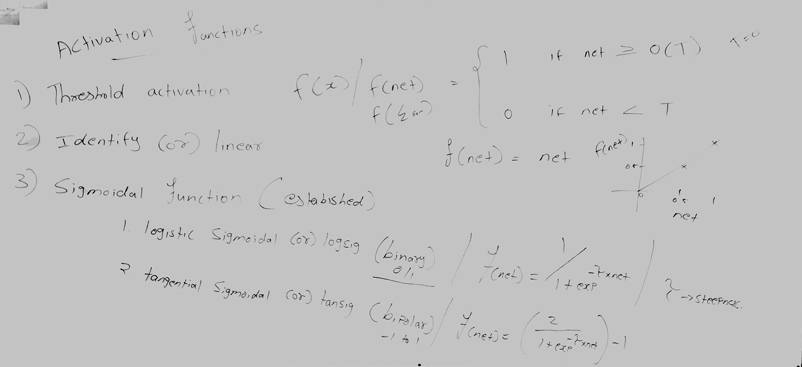 Activation functions
1) Threshold activation f(x) / f(net) = { 1 if net ≥ 0(T) T=0
0 if net < T
2) Identify (or) linear f(net) = net
f(net)
net
3) Sigmoidal function (established)
1. logistic Sigmoidal (or) logsig (binary) / f(net) = 1/1+exp^-τxnet / τ → steepness.
0/1
2 tangential Sigmoidal (or) tansig (bipolar) / f(net) = (2/1+exp^-τxnet) -1
-1 to 1